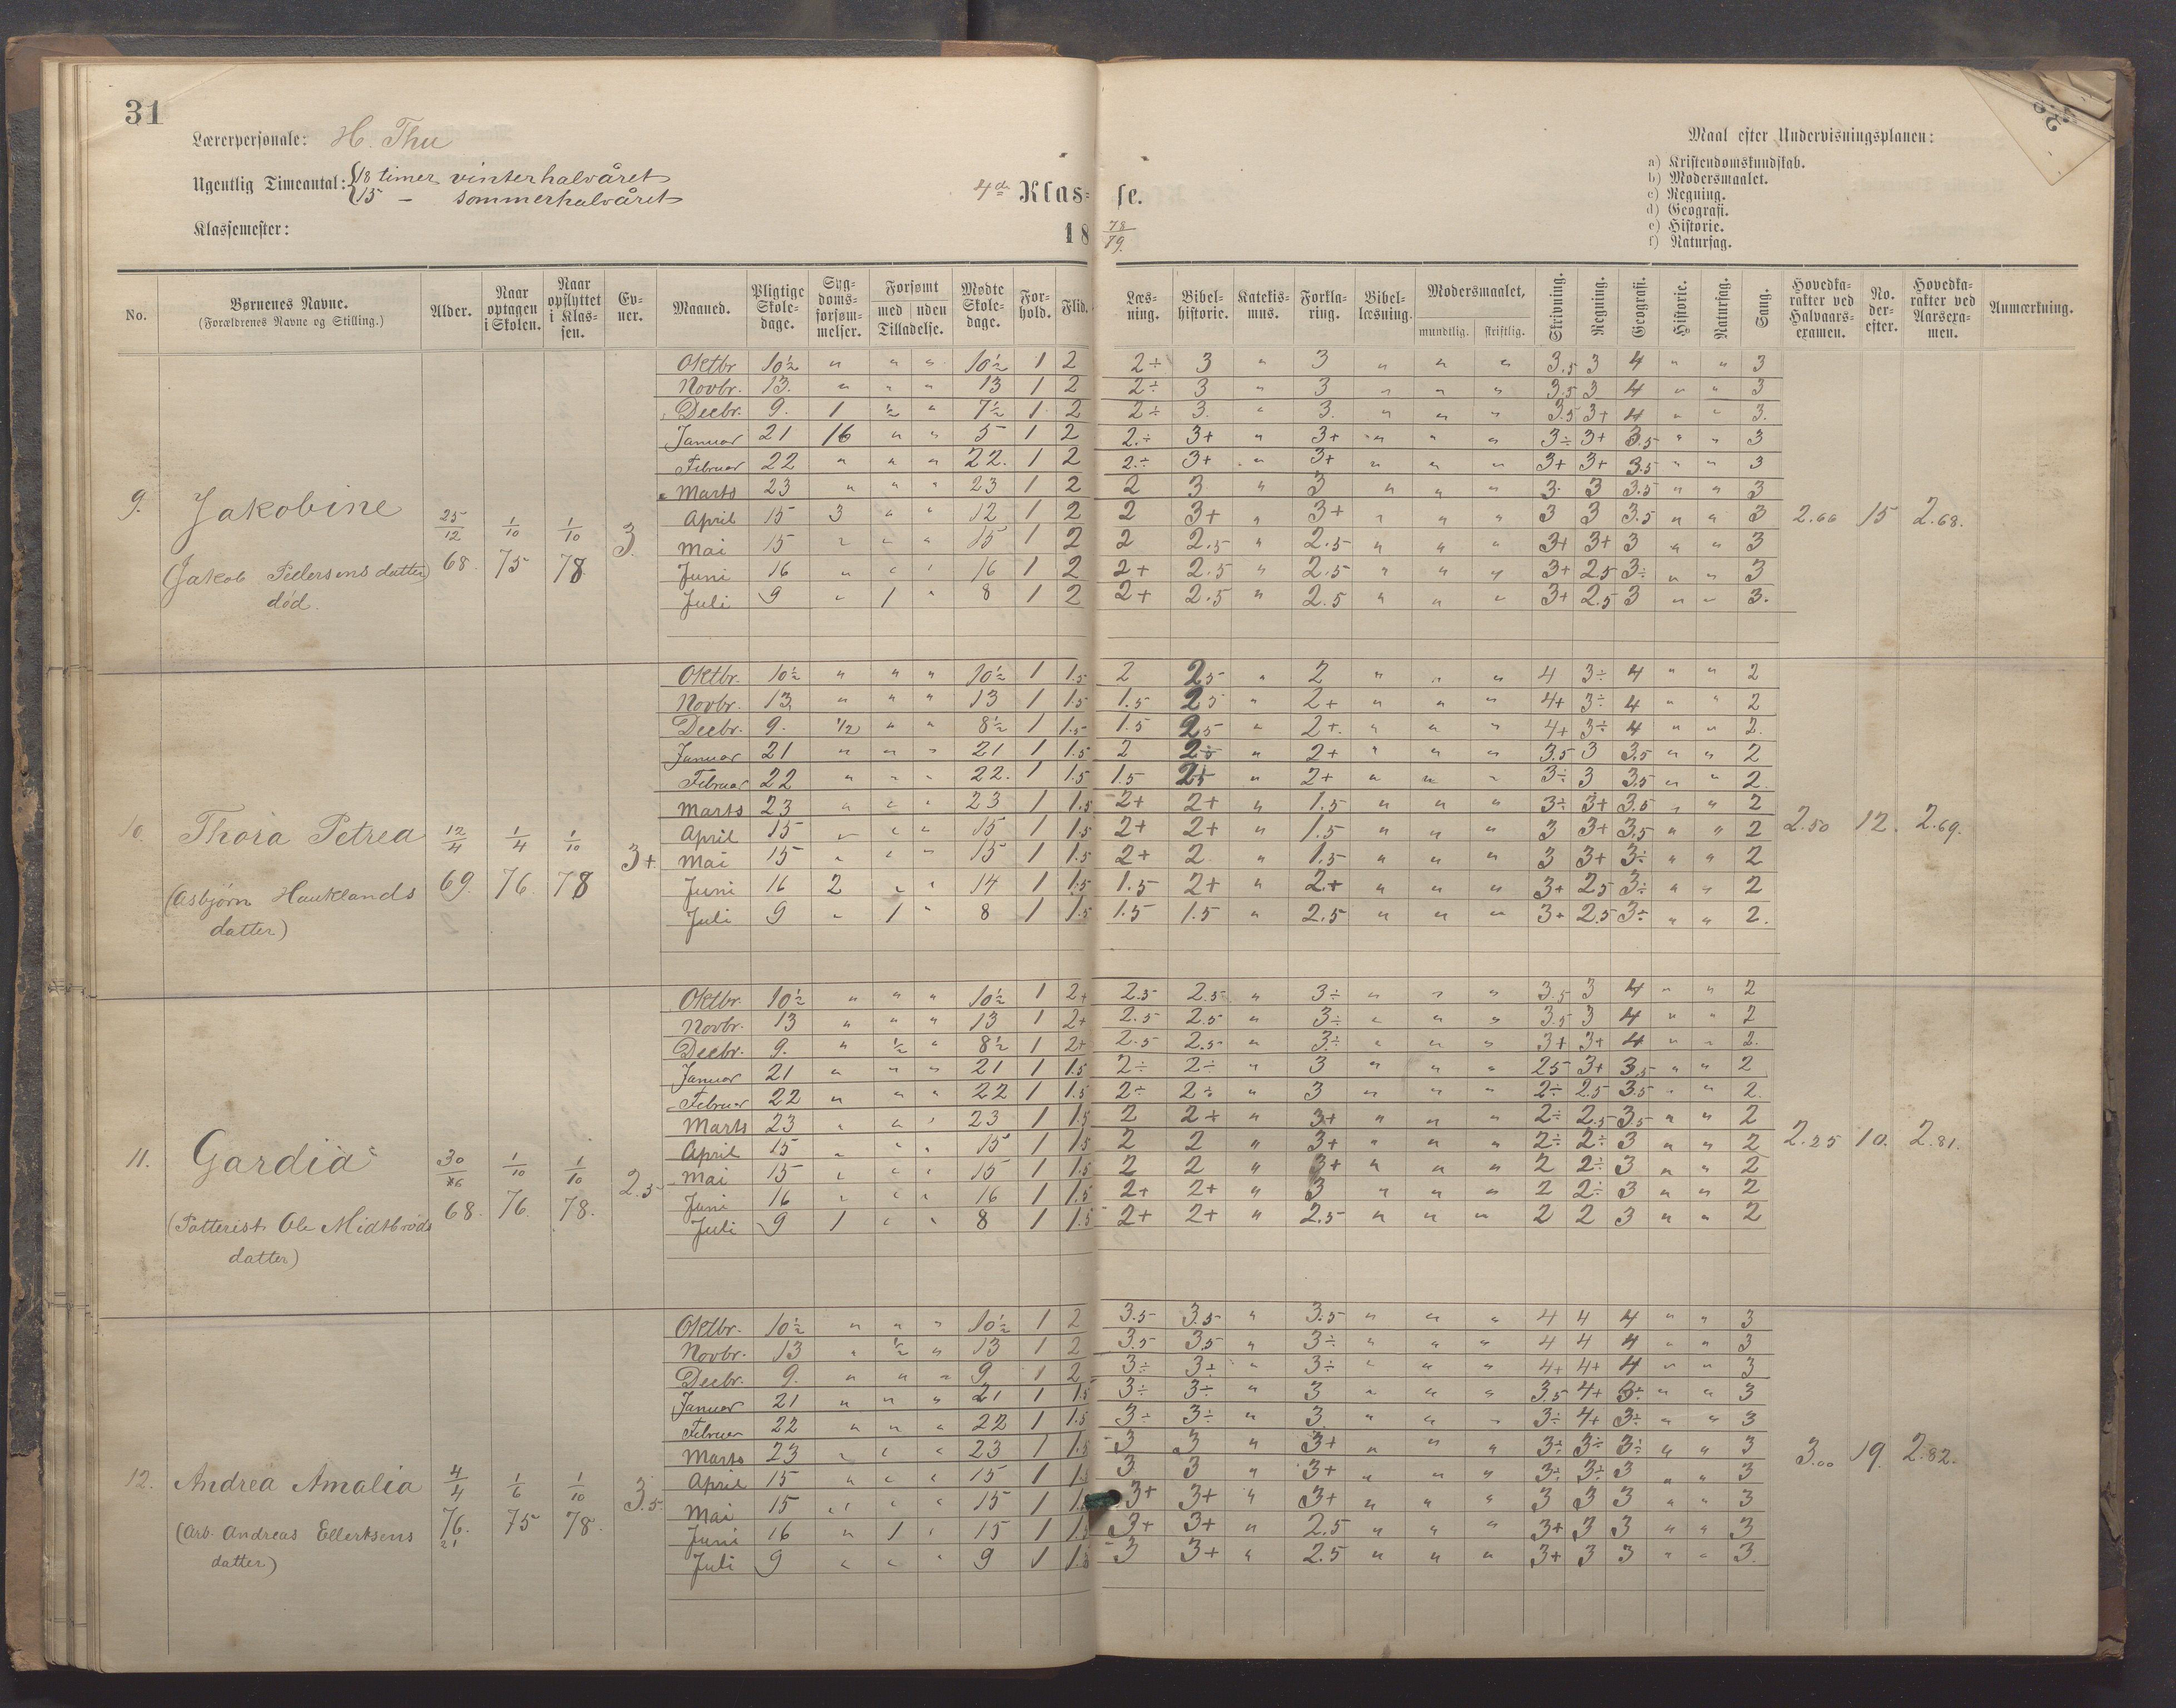 31
Lærerpersonale: H. Thu
Ugentlig Timeantal: {18 timer vinterhalvåret
{15 — sommerhalvåret
4de Klas- se.
Klassemester:
18 78/79.
Maal efter Undervisningsplanen:
a) Kristendomskundskab.
b) Modersmaalet.
c) Regning.
d) Geografi.
e) Historie.
f) Naturfag.
No. | Børnenes Navne. (Forældrenes Navne og Stilling.) | Alder. | Naar optagen i Skolen. | Naar opflyttet i Klas- sen. | Ev- ner. | Maaned. | Pligtige Skole- dage. | Syg- doms- forsøm- melser. | Forsømt med | uden Tilladelse. | Mødte Skole- dage. | For- hold. | Flid. | Læs- ning. | Bibel- historie. | Katekis- mus. | Forkla- ring. | Bibel- læsning. | Modersmaalet, mundtlig. | skriftlig. | Skrivning. | Regning. | Geografi. | Historie. | Naturfag. | Sang. | Hovedka- rakter ved Halvaars- examen. | No. der- efter. | Hovedka- rakter ved Aarsexa- men. | Anmærkning.
Oktbr 10½ " " " 10½ 1 2 2÷ 3 " 3 " " " 3.5 3 4 " " 3
Novbr. 13. " " " 13 1 2 2÷ 3 " 3 " " " 3.5 3 4 " " 3
Decbr. 9. 1 ½ " 7½ 1 2 2÷ 3. " 3. " " " 3.5 3+ 4 " " 3.
Januar 21 16 " " 5 1 2 2.÷ 3+ " 3+ " " " 3÷ 3+ 3.5 " " 3
Februar 22 " " " 22. 1 2 2.÷ 3+ " 3+ " " " 3+ 3+ 3.5 " " 3
Marts 23 " " " 23 1 2 2 3 " 3 " " " 3 3 3.5 " " 3
9. Jakobine 25/12 68. 1/10 75 1/10 78 3.
April 15 3 " " 12 1 2 2 3+ " 3+ " " " 3 3 3.5 " " 3 2.66 15 2.68.
Mai 15 " " " 15 1 2 2 2.5 " 2.5 " " " 3+ 3+ 3 " " 3
(Jakob Pedersens datter)
Juni 16 " " " 16 1 2 2+ 2.5 " 2.5 " " " 3+ 2.5 3÷ " " 3
død.
Juli 9 " 1 " 8 1 2 2+ 2.5 " 2.5 " " " 3+ 2.5 3 " " 3.
Oktbr. 10½ " " " 10½ 1 1.5 2 2.5 " 2 " " " 4 3÷ 4 " " 2
Novbr. 13. " " " 13 1 1.5 1.5 2.5 " 2+ " " " 4+ 3÷ 4 " " 2
Decbr. 9. 1/2 " " 8½ 1 1.5 1.5 2.5 " 2+. " " " 4+ 3÷ 4 " " 2.
Januar 21 " " " 21 1 1.5 2 2÷ " 2+ " " " 3.5 3 3.5 " " 2
Februar 22 " " " 22. 1 1.5 1.5 " 2+ " " " 3÷ 3 3.5 " " 2.
Marts 23 " " " 23 1 1.5 2+ 2+ " 1.5 " " " 3÷ 3+ 3.5 " " 2
10. Thora Petrea 12/4 69. 1/4 76. 1/10 78 3+.
April 15 " " " 15 1 1.5 2+ 2+ " 1.5 " " " 3 3+ 3.5 " " 2 2.50 12. 2.69.
Mai 15 " " " 15 1 1.5 2+ 2 " 1.5 " " " 3 3+ 3÷ " " 2
(Asbjørn Hauklands
Juni 16 2 " " 14 1 1.5 1.5 2+ " 2+ " " " 3+ 2.5 3÷ " " 2
datter)
Juli 9 " 1 " 8 1 1.5 1.5 1.5 " 2.5 " " " 3+ 2.5 3÷ " " 2.
Oktbr. 10½ " " " 10½ 1 2+ 2.5 2.5 " 3÷ " " " 3.5 3 4 " " 2
Novbr. 13 " " " 13 1 2+ 2.5 2.5 " 3÷ " " " 3.5 3 4 " " 2
Decbr. 9. " ½ " 8½ 1 2+ 2.5 2.5 " 3÷ " " " 3+ 3+ 4 " " 2.
Januar 21 " " " 21 1 1.5 2÷ 2÷ " 3 " " " 2.5 3+ 3.5 " " 2
Februar 22 " " " 22 1 1.5 2÷ 2÷ " 3 " " " 2÷ 2.5 3.5 " " 2.
Marts 23 " " " 23 1 1.5 2 2+ " 3+ " " " 2÷ 2.5 3.5 " " 2
11. Gardia 30/6 68. 1/10 76. 1/10 78. 2.5
April 15 " " " 15 1 1.5 2 2 " 3+ " " " 2÷ 2÷ 3 " " 2 2.25 10. 2.81.
Mai 15 " " " 15 1 1.5 2 2 " 3+ " " " 2 2÷ 3 " " 2
Juni 16 " " " 16 1 1.5 2+ 2+ " 3 " " " 2 2÷ 3 " " 2
(Potterist. Ole Midtbrøds
Juli 9 1 " " 8 1 1.5 2+ 2+ " 2.5 " " " 2 2 3 " " 2
datter)
Oktbr. 10½ " " " 10½ 1 2 3.5 3.5 " 3.5 " " " 4 4 4 " " 3
Novbr. 13 " ½ " 13 1 2 3.5 3.5 " 3÷ " " " 4 4 4 " " 3
Decbr. 9. " " " 9 1 2 3÷ 3÷ " 3÷ " " " 4+ 4+ 4 " " 3
Januar 21 " " " 21 1 1.5 3÷ 3÷ " 3 " " " 3.5 4+ 3÷ " " 3
Februar 22 " " " 22 1 1.5 3÷ 3÷ " 3 " " " 3÷ 4+ 3÷ " " 3
Marts 23 " " " 23 1 1.5 3 3 " 3+ " " " 3÷ 3÷ 3÷ " " 3
12. Andrea Amalia 4/4 76. 21 1/6 75 1/10 78. 3.5.
April 15 " " " 15 1 1.5 3 3 " 3+ " " " 3÷ 3÷ 3 " " 3 3.00 19. 2.82.
Mai 15 " " " 15 1 3+ 3+ " 3+ " " " 3 3 3 " " 3
(Arb. Andreas Ellertsens
Juni 16 " 1 " 15 1 1.5 3+ 3+ " 2.5 " " " 3+ 3 3 " " 3
datter)
Juli 9 " " " 9 1 3 3+ " 2.5 " " " 3+ 3 3 " " 3.